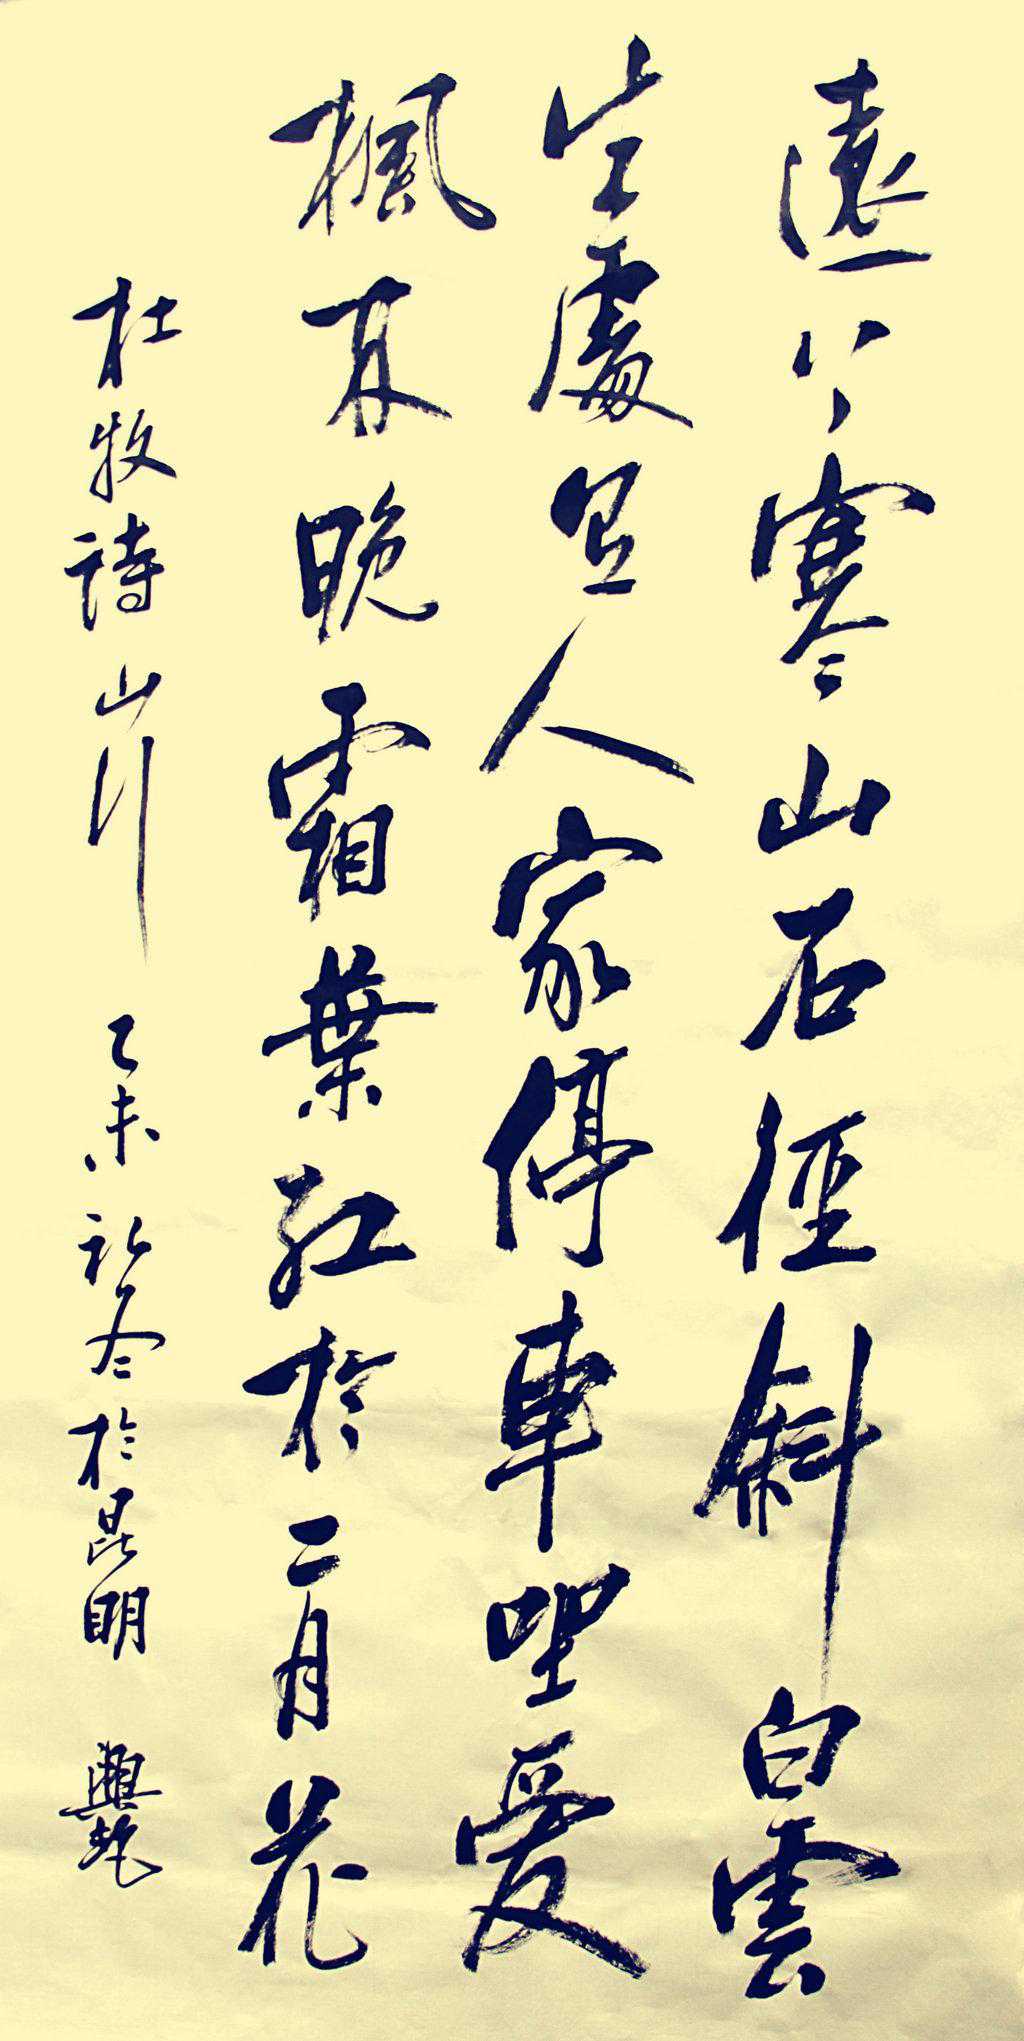 遠上寒山石徑斜白雲
生處有人家停車坐愛
楓林晚霜葉紅於二月花
杜牧詩山行 乙未初冬於昆明